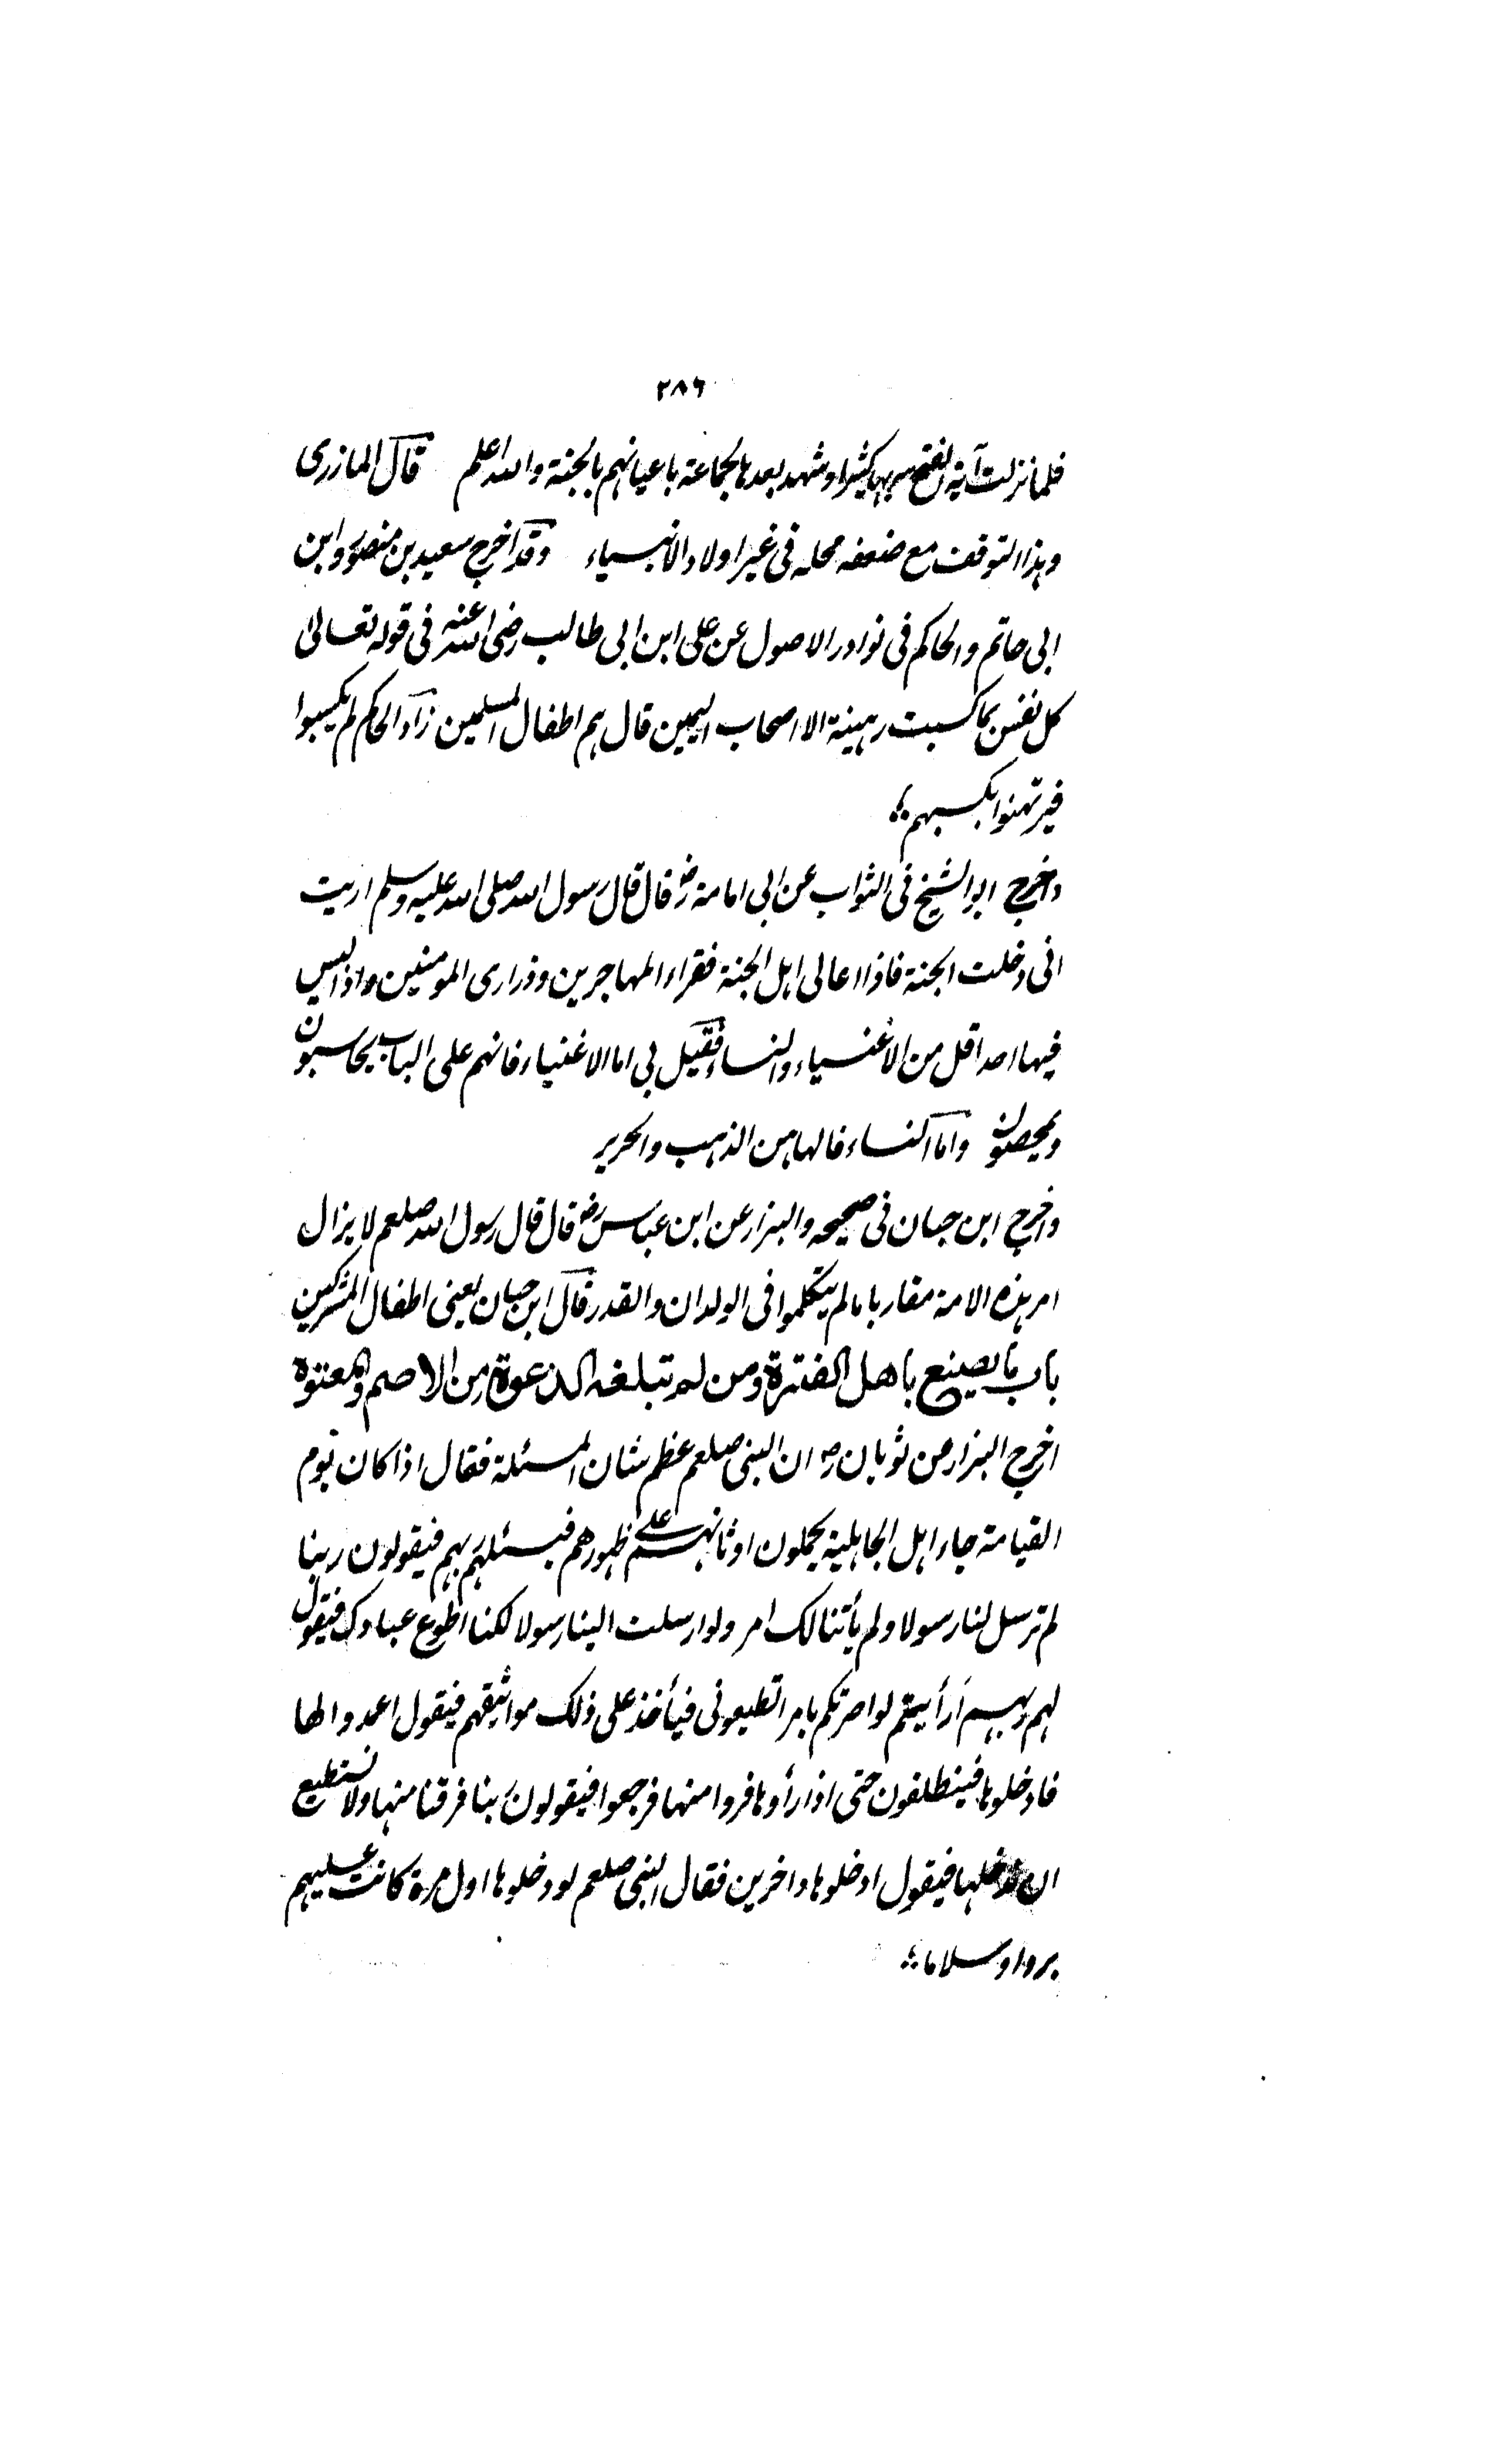 ٢٨٦
فلما نزلت آية الفتح سر بها كثيرا وشهد بعدها لجماعة باعيانهم بالجنة والله اعلم قال المازرى
وهذا التوقف مع ضعفه محله فى غير اولاد الانبياء وقد اخرج سعيد بن منصور وابن
ابى حاتم والحاكم فى نوادر الاصول عن على ابن ابى طالب رضى الله عنه فى قوله تعالى
كل نفس بما كسبت رهينة الا اصحاب اليمين قال هم اطفال المسلمين زاد الحاكم لم يكسبوا
فيرتهنوا بكسبهم
واخرج ابو الشيخ فى الثواب عن ابى امامة رض قال قال رسول الله صلى الله عليه وسلم اريت
انى دخلت الجنة فاذا اعالى اهل الجنة فقراء المهاجرين وذرارى المومنين واذا ليس
فيها احد اقل من الأغنياء والنساء فقيل لى اما الاغنياء فانهم على الباب يحاسبون
ويمحصون واما النساء فالهاهن الذهب والحرير
واخرج ابن حبان فى صحيحه والبزار عن ابن عباس رض قال قال رسول الله صلعم لا يزال
امر هذه الامة مقاربا ما لم يتكلموا فى الولدان والقدر قال ابن حبان يعنى اطفال المشركين
باب ما يصنع باهل الفترة ومن لم تبلغه الدعوة من الاصم والمعتوه
اخرج البزار عن ثوبان رض ان النبى صلعم عظم شان المسئلة فقال اذا كان يوم
القيامة جاء اهل الجاهلية يحملون اوثانهم على ظهورهم فيسئلهم ربهم فيقولون ربنا
لم ترسل لنا رسولا ولم يأتنا لك امر ولو ارسلت الينا رسولا لكنا اطوع عبادك فيقول
لهم ربهم أرأيتم لو امرتكم بامر اتطيعونى فيأخذ على ذلك مواثيقهم فيقول اعمدوا لها
فادخلوها فينطلقون حتى اذا رأوها فروا منها فرجعوا فيقولون ربنا فرقنا منها ولا نستطيع
ان ندخلها فيقول ادخلوها داخرين فقال النبى صلعم لو دخلوها اول مرة كانت عليهم
بردا وسلاما